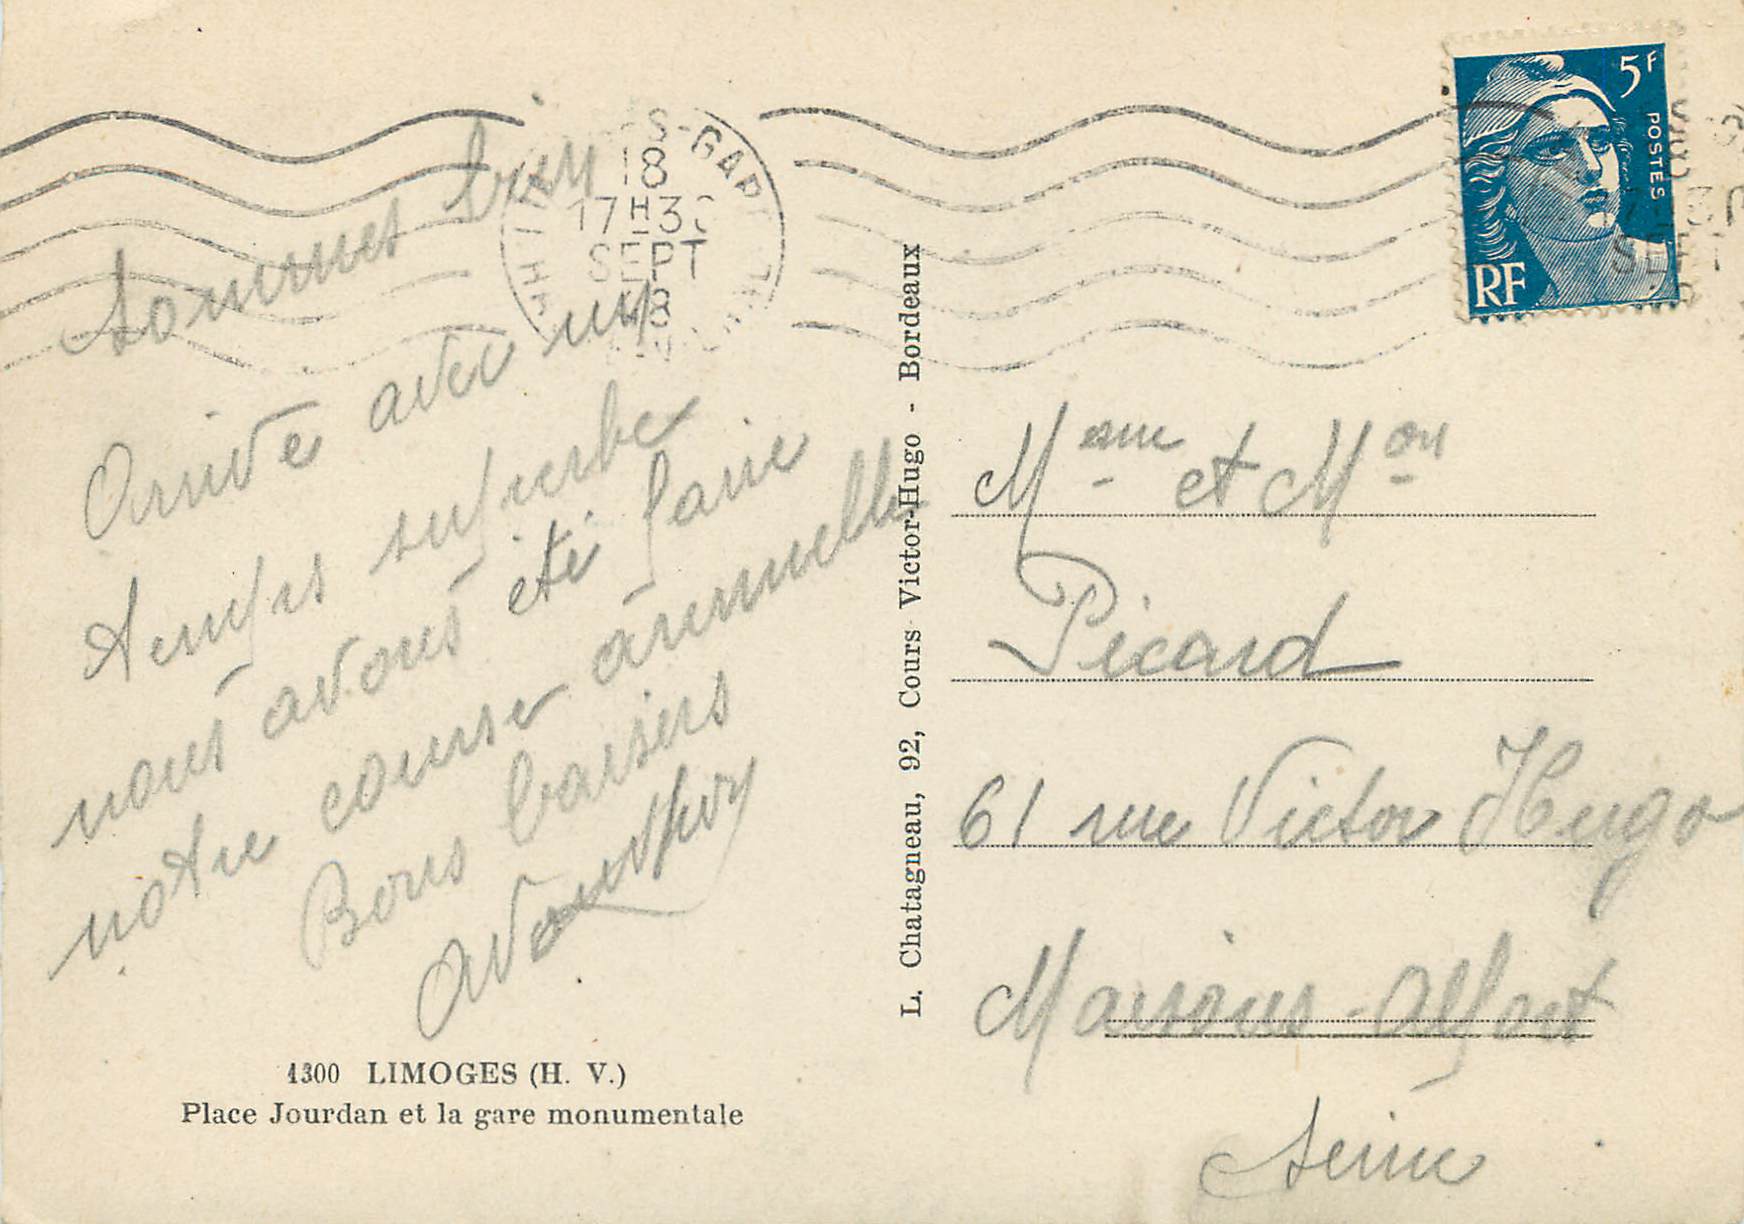 sommes bien
Arrivé avec un
temps superbe
nous avons été faire
notre course annuelle
Bons baisers
1300 LIMOGES (H. V.)
Place Jourdan et la gare monumentale
L. Chatagneau, 92, Cours Victor-Hugo - Bordeaux
S-GARE
18
17H30
SEPT
48
5F
POSTES
RF
Mame et Mon
Picard
61 rue Victor Hugo
Maisons-Alfort
Seine